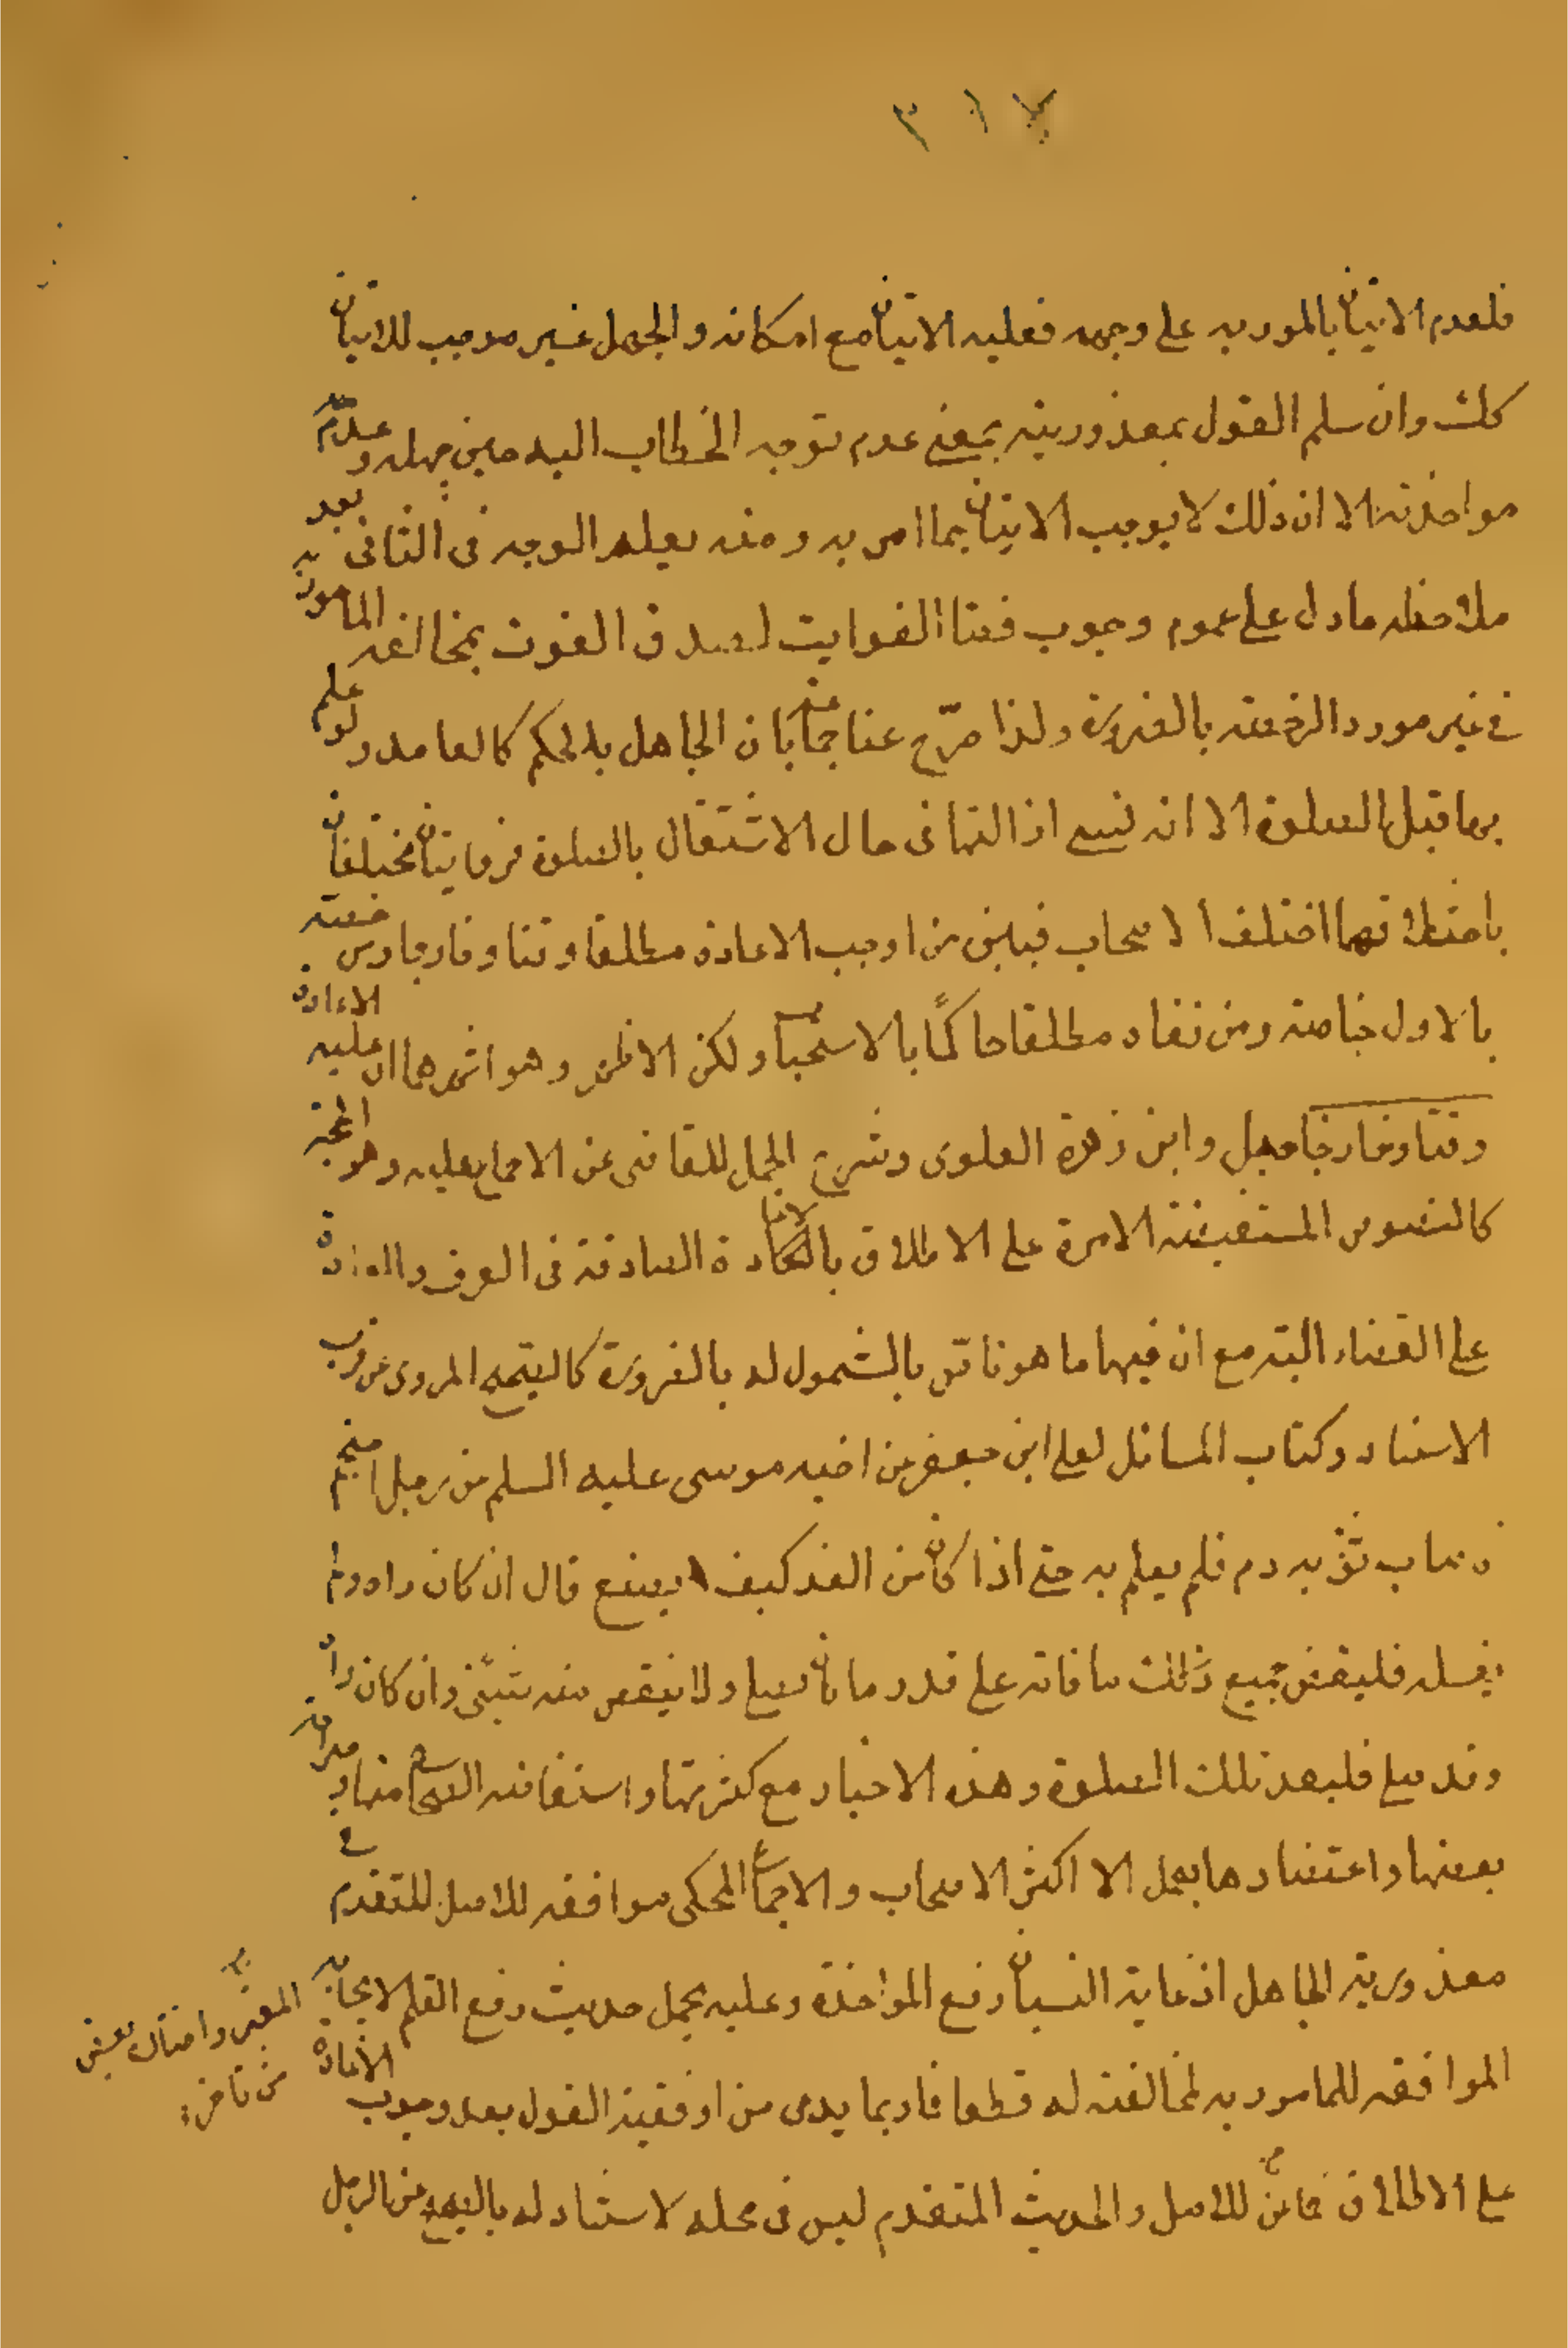 ٣١٧
فلعدم الاتيان بالمور به على وجهه فعليه الاتيان مع امكانه والجهل غير موجب للاتيان
كك وان سلم القول بمعذوريته بمعنى عدم توجه الخطاب اليه حين جهله وعدم
مواخذته الا ان ذلك لا يوجب الاتيان بما امر به ومنه يعلم الوجه فى الثانى بعد
ملاحظه مادل على عموم وجوب قضا الفوايت لصدق الفوت بمخالفه المامور به
فى غير مورد الرخصه بالضرورة ولذا صرّح عنا جماعة بان الجاهل بالحكم كالعامد ولو علم
بها قبل الصلوة الا انه نسى ازالتها فى حال الاشتغال بالصلوة فروايتان مختلفتان
باختلافهما اختلف الاصحاب فبين من اوجب الاعادة مطلقا وقتا وخارجا ومن خصه
بالاول خاصه ومن نفاه مطلقا حاكمًا بالاستحباب ولكن الاظهر وهو اشهرهما ان عليه الاعادة
وقتا وخارجا وابن زهرة العلوى وشرح الجمل للقاضى عن الاجماع عليه وهو الحجة
كالنصوص المستفيضه الامرة على الاطلاق بالاعادة الصادقة فى العرف والعادة
على القضاء البته مع ان فيها ما هو ناصّ بالشمول له بالضرورة كالصحيح المروى عن قرب
الاسناد وكتاب المسائل لعلى ابن جعفر عن اخيه موسى عليه السلم عن رجل احتجم
فاصاب ثوبه دم فلم يعلم به حتى اذا كان من الغد كيف يصنع قال ان كان راه ولم
يغسله فليقض جميع ذلك ما فاته على قدر ما كان صلى ولا ينقص منه شيئى وان كان راه
وقد صلى فليعد تلك الصلوة وهذه الاخبار مع كثرتها واستفاضه الصحاح منها وصراحة
بعضها واعتضادها بعمل الاكثر الاصحاب والاجماع المحكى موافقه للاصل المتقدم فى
معذورية الجاهل اذ غاية النسيان رفع المواخذة وعليه يحمل حديث رفع القلم لايجابه
الموافقه للمامور به لمخالفته له قطعا فاربما يدعى من اوفقية القول بعد وجوب الاعادة
على الاطلاق للاصل والحديث المتقدم ليس فى محله لاستناد له بالصحيح عن الرجل